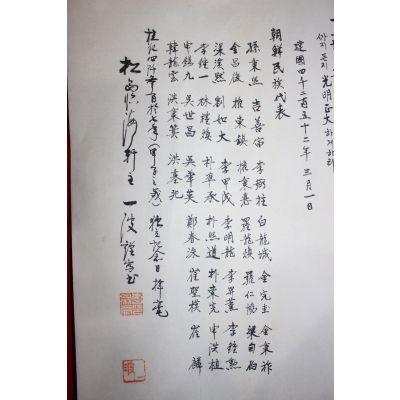 사지든지 光明正大하게하라
建國四千二百五十二年 三月一日
朝鮮民族代表
孫秉熙 吉善宙 李弼柱 白龍城 金完圭 金秉祚
金昌俊 權東鎭 權秉悳 羅龍煥 羅仁協 梁甸伯
梁漢默 劉如大 李甲成 李明龍 李昇薰 李鍾勳
李鍾一 林禮煥 朴準承 朴熙道 朴東完 申洪植
申錫九 吳世昌 吳華英 鄭春洙 崔聖模 崔麟
韓龍雲 洪秉箕 洪基兆
(甲子之歲) 獨立紀念日
海軒主 一波 謹書